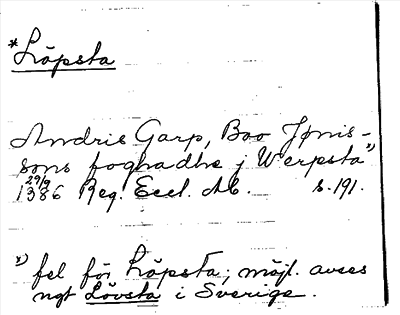 *Löpsta
Andris Garp, Boo Jønis-
sons foghadhe j Werpsta*)
29/9
1386 Reg. Eccl. Ab. s. 191.
*) fel för Löpsta; möjl. avses
ngt Lövsta i Sverige.